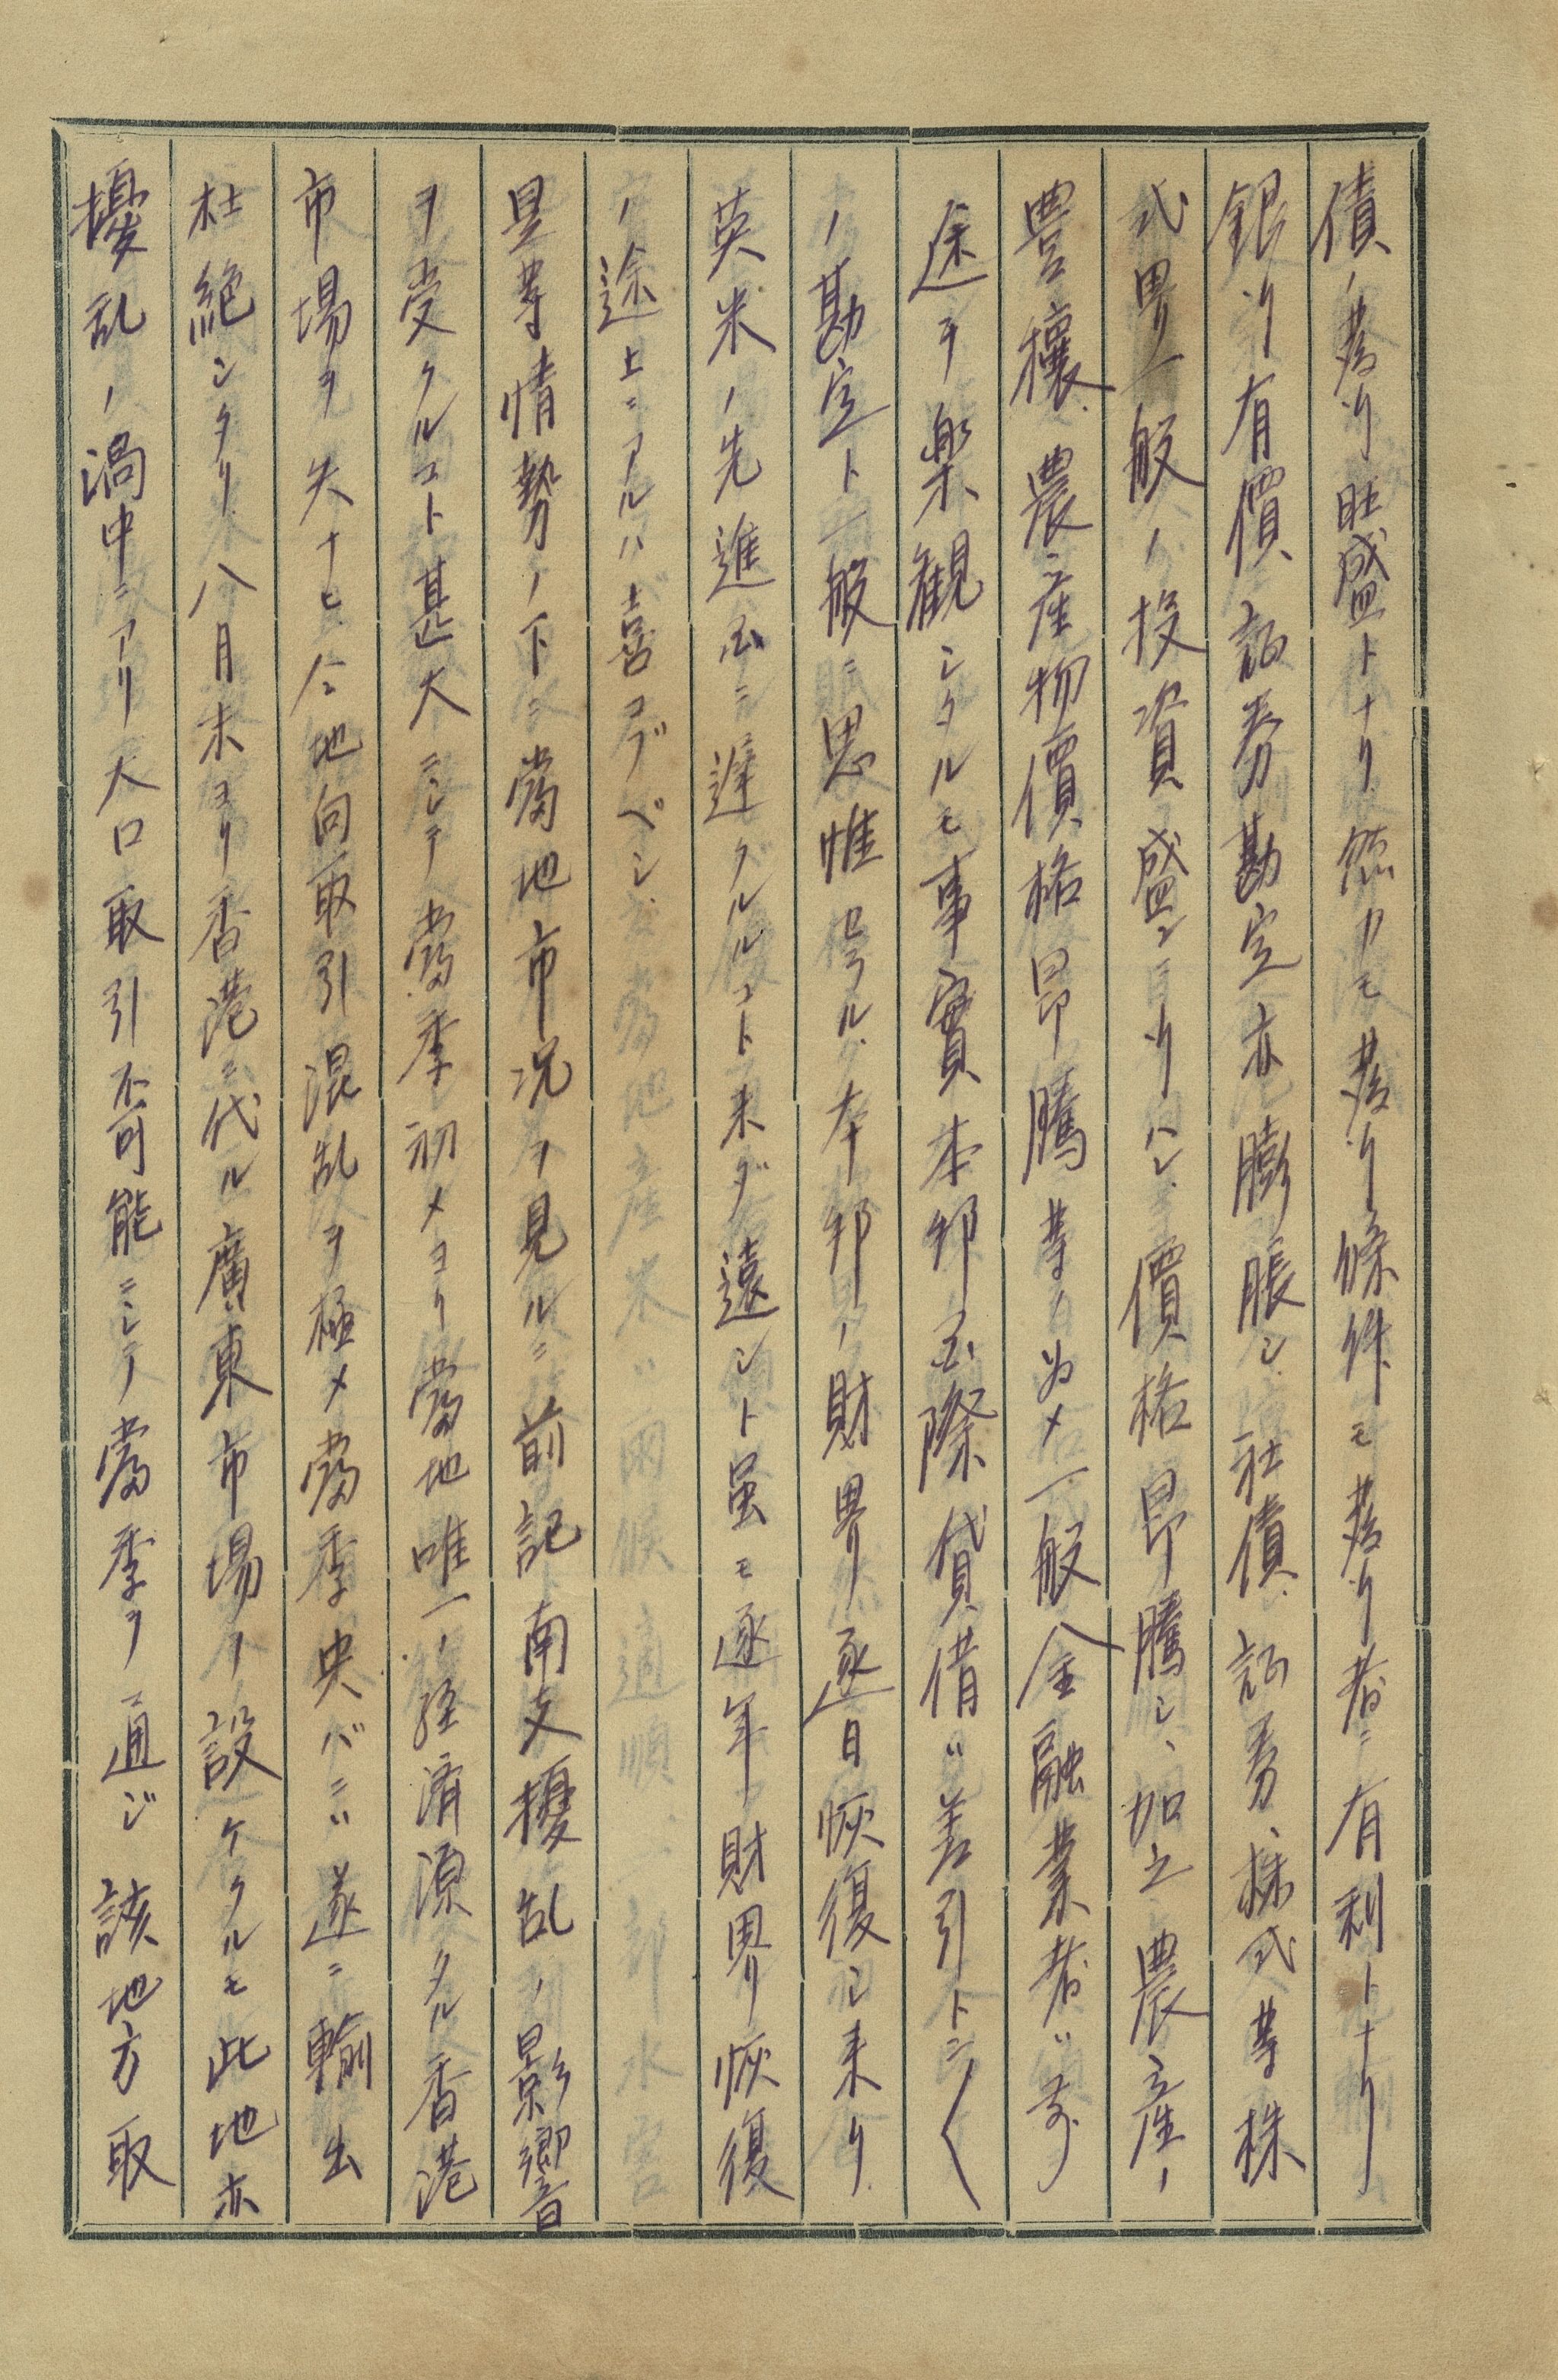 債ノ發行旺盛トナリ然カモ發行條件モ發行者ニ有利トナリ
銀行有價証券勘定亦膨脹シ社債、証券、株式等株
式界一般ノ投資盛ン行ハレ價格昂騰シ、加之農産ノ
豊穰農産物價格昂騰等ノ為メ一般金融業者ハ前
途ヲ楽観シタルモ事實本邦国際貸借ハ差引トシテ
ノ勘定ト一般ニ思惟セラル、本邦ノ財界ハ逐日恢復シ来リ
英米ノ先進国ニ遅クルルコト未ダ遠シト虽モ逐年財界ノ恢復
ノ途上ニアルハ喜コブベシ
是等情勢ノ下ニ當地市况ヲ見ルニ前記南支擾乱ノ影響
ヲ受クルコト甚大ニシテ當季初メヨリ當地唯一ノ経済源タル香港
市場ヲ失ナヒ仝地向取引混乱ヲ極メ當季央バニハ遂ニ輸出
杜絶シタリ八月末ヨリ香港ニ代ル廣東市場ノ設ケタルモ此地亦
擾乱ノ渦中ニアリ大口取引不可能ニシテ當季ヲ通ジ該地方取